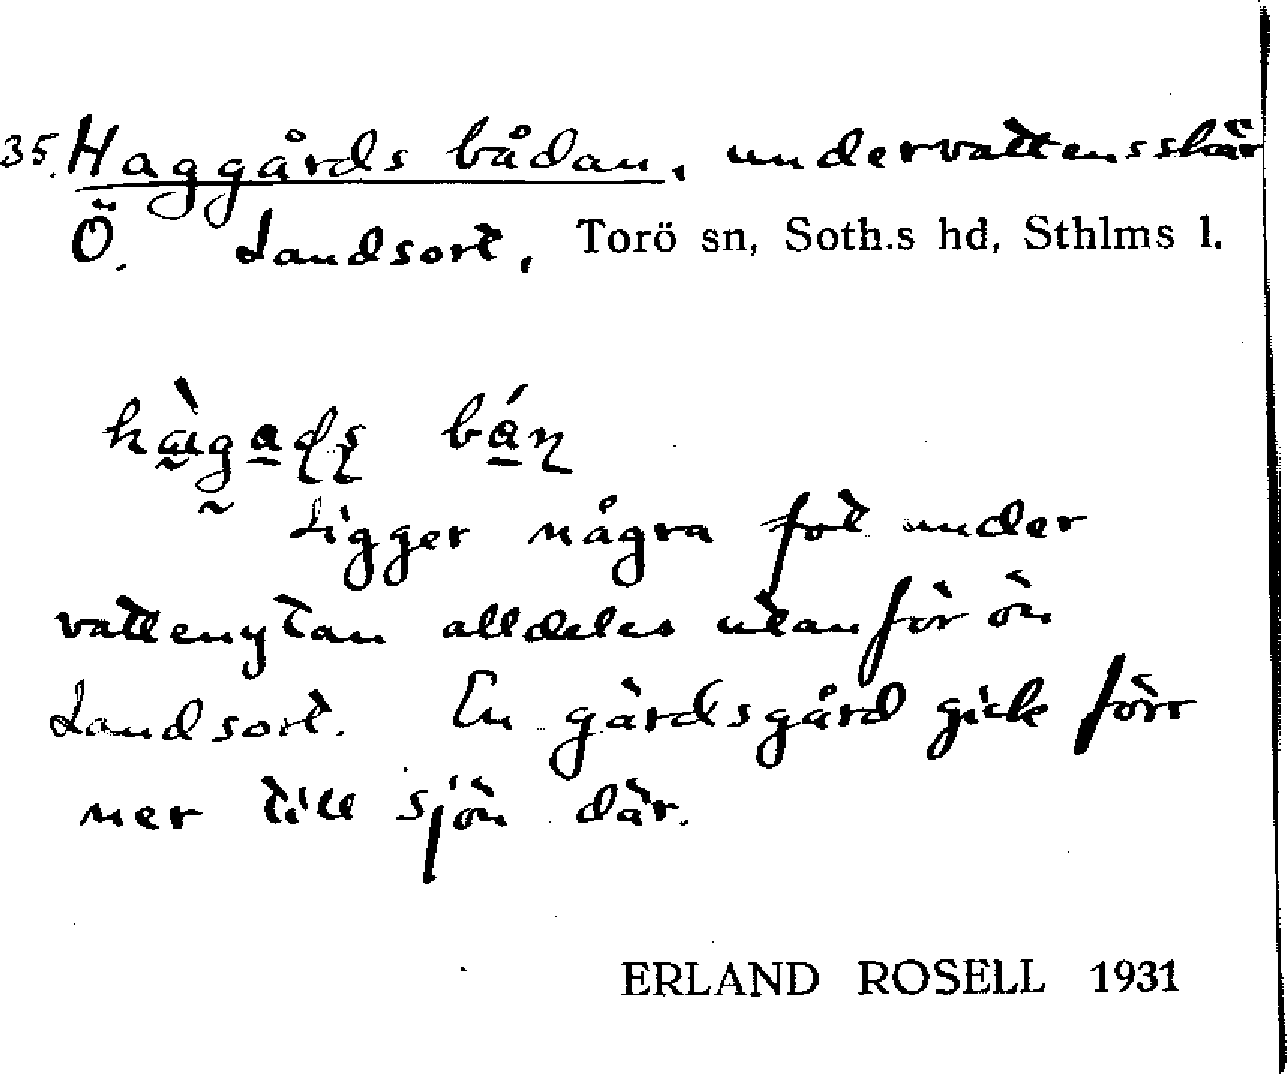 35. Haggårds bådan, undervattensskär
Ö. Landsort, Torö sn, Soth.s hd, Sthlms l.
Ligger några fot under
vattenytan alldeles utanför ön
Landsort. En gärdsgård gick förr
ner till sjön där.
ERLAND ROSELL 1931